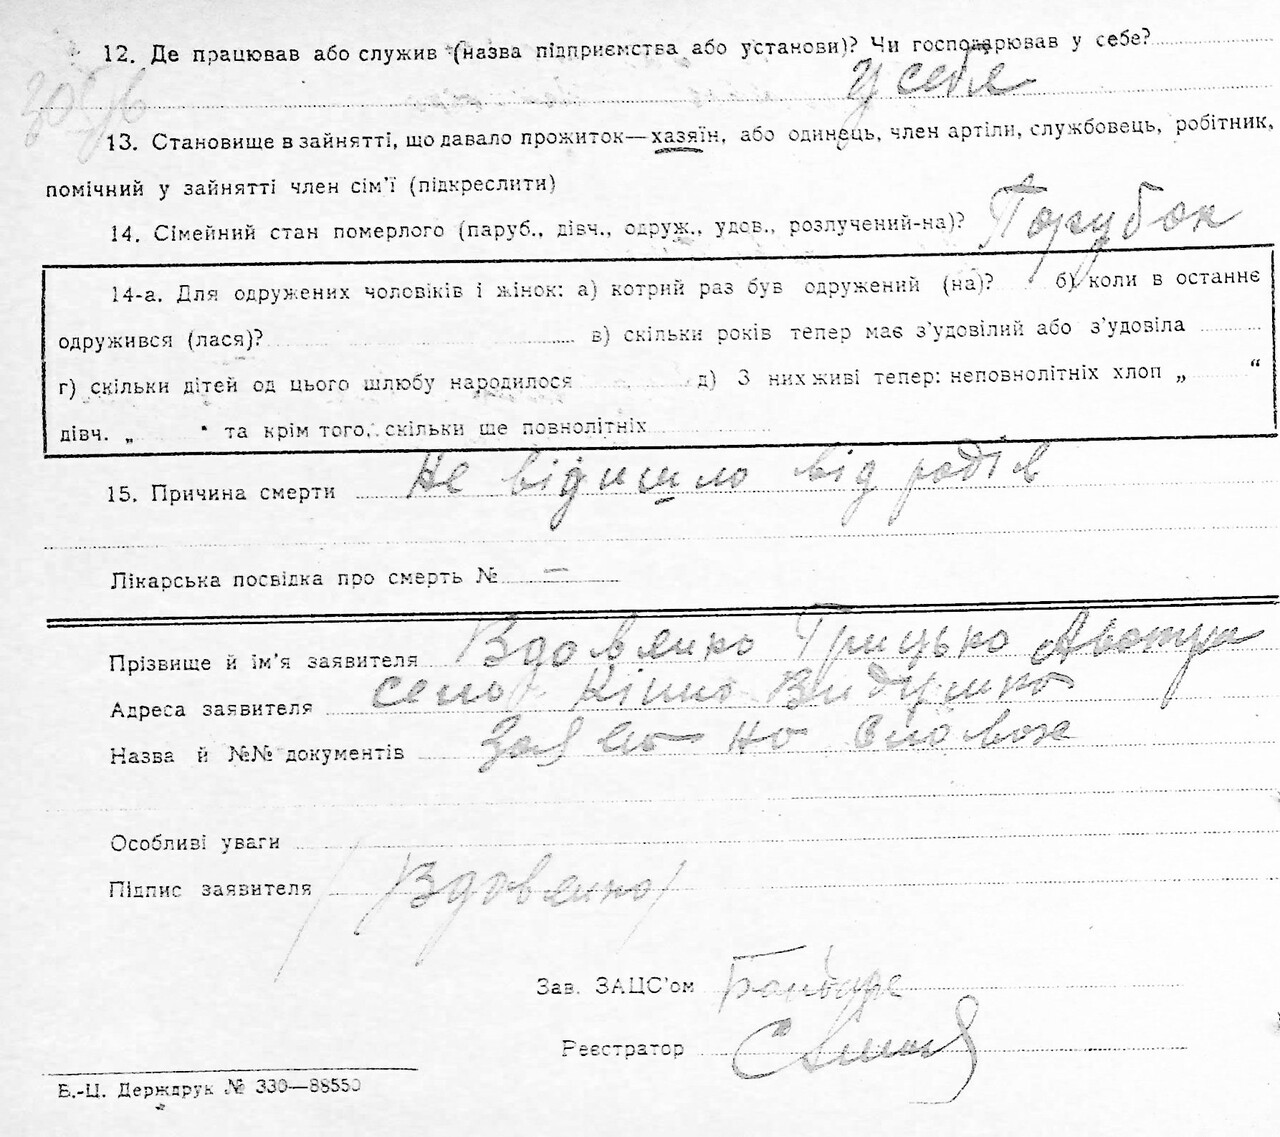 12. Де працював або служив (назва підприємства або установи)? Чи господарював у себе?
у себе
13. Становище в зайнятті, що давало прожиток—хазяїн, або одинець, член артіли, службовець, робітник,
помічний у зайнятті член сім'ї (підкреслити)
14. Сімейний стан померлого (паруб., дівч., одруж., удов., розлучений-на)? Парубок
14-а. Для одружених чоловіків і жінок: а) котрий раз був одружений (на)? б) коли в останнє
одружився (лася)? в) скільки років тепер має з'удовілий або з'удовіла
г) скільки дітей од цього шлюбу народилося д) З них живі тепер: неповнолітніх хлоп „ “
дівч. „ “ та крім того, скільки ще повнолітніх
15. Причина смерти Не відишло від родів
Лікарська посвідка про смерть № —
Прізвище й ім'я заявителя Вдовенко Грицько
Адреса заявителя село
Назва й №№ документів
Особливі уваги
Підпис заявителя Вдовенко
Зав. ЗАЦС'ом Бондар
Реєстратор
Б.-Ц. Держдрук № 330—88550